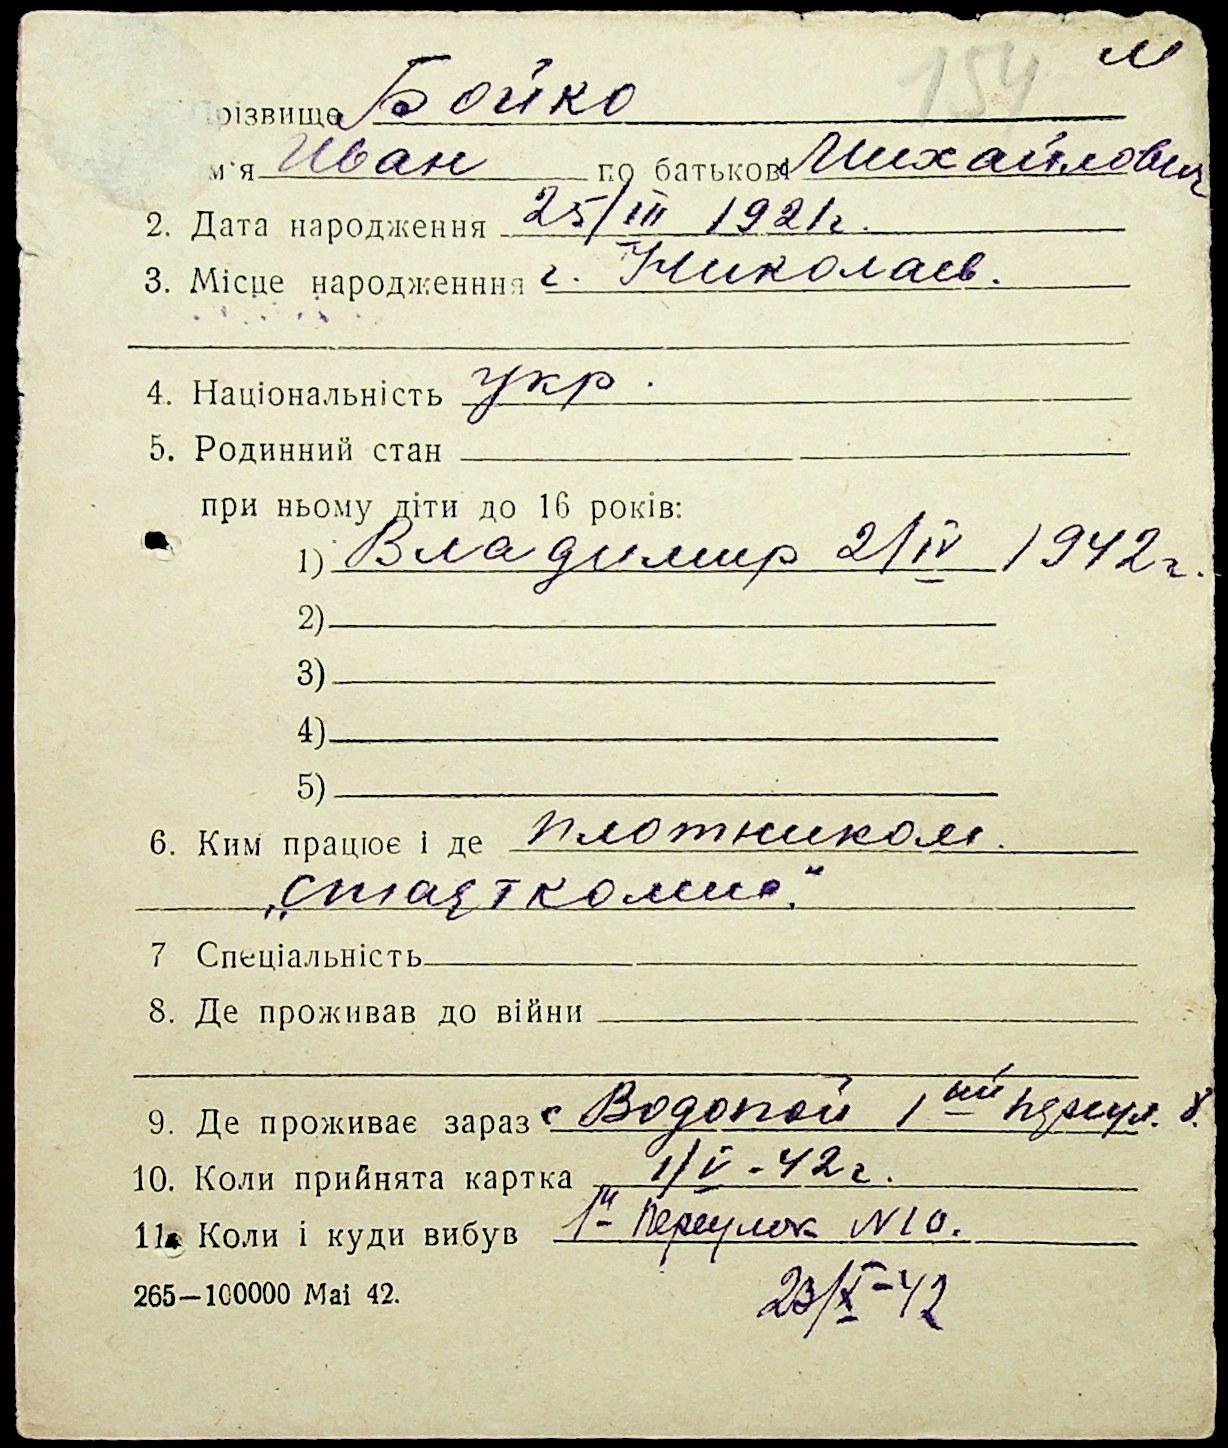 м
154
Прізвище Бойко
м'я Иван по батькові Михайлович
2. Дата народження 25/III 1921г.
3. Місце народженння г. Николаев.
4. Національність укр.
5. Родинний стан
при ньому діти до 16 років:
1) Владимир 2/IV 1942г.
2)
3)
4)
5)
6. Ким працює і де плотником.
7 Спеціальність
8. Де проживав до війни
9. Де проживає зараз с Водопой 1ый переул. 8.
10. Коли прийнята картка 1/V-42г.
11. Коли і куди вибув 1й переулок N10.
265—100000 Mai 42.
23/X-42